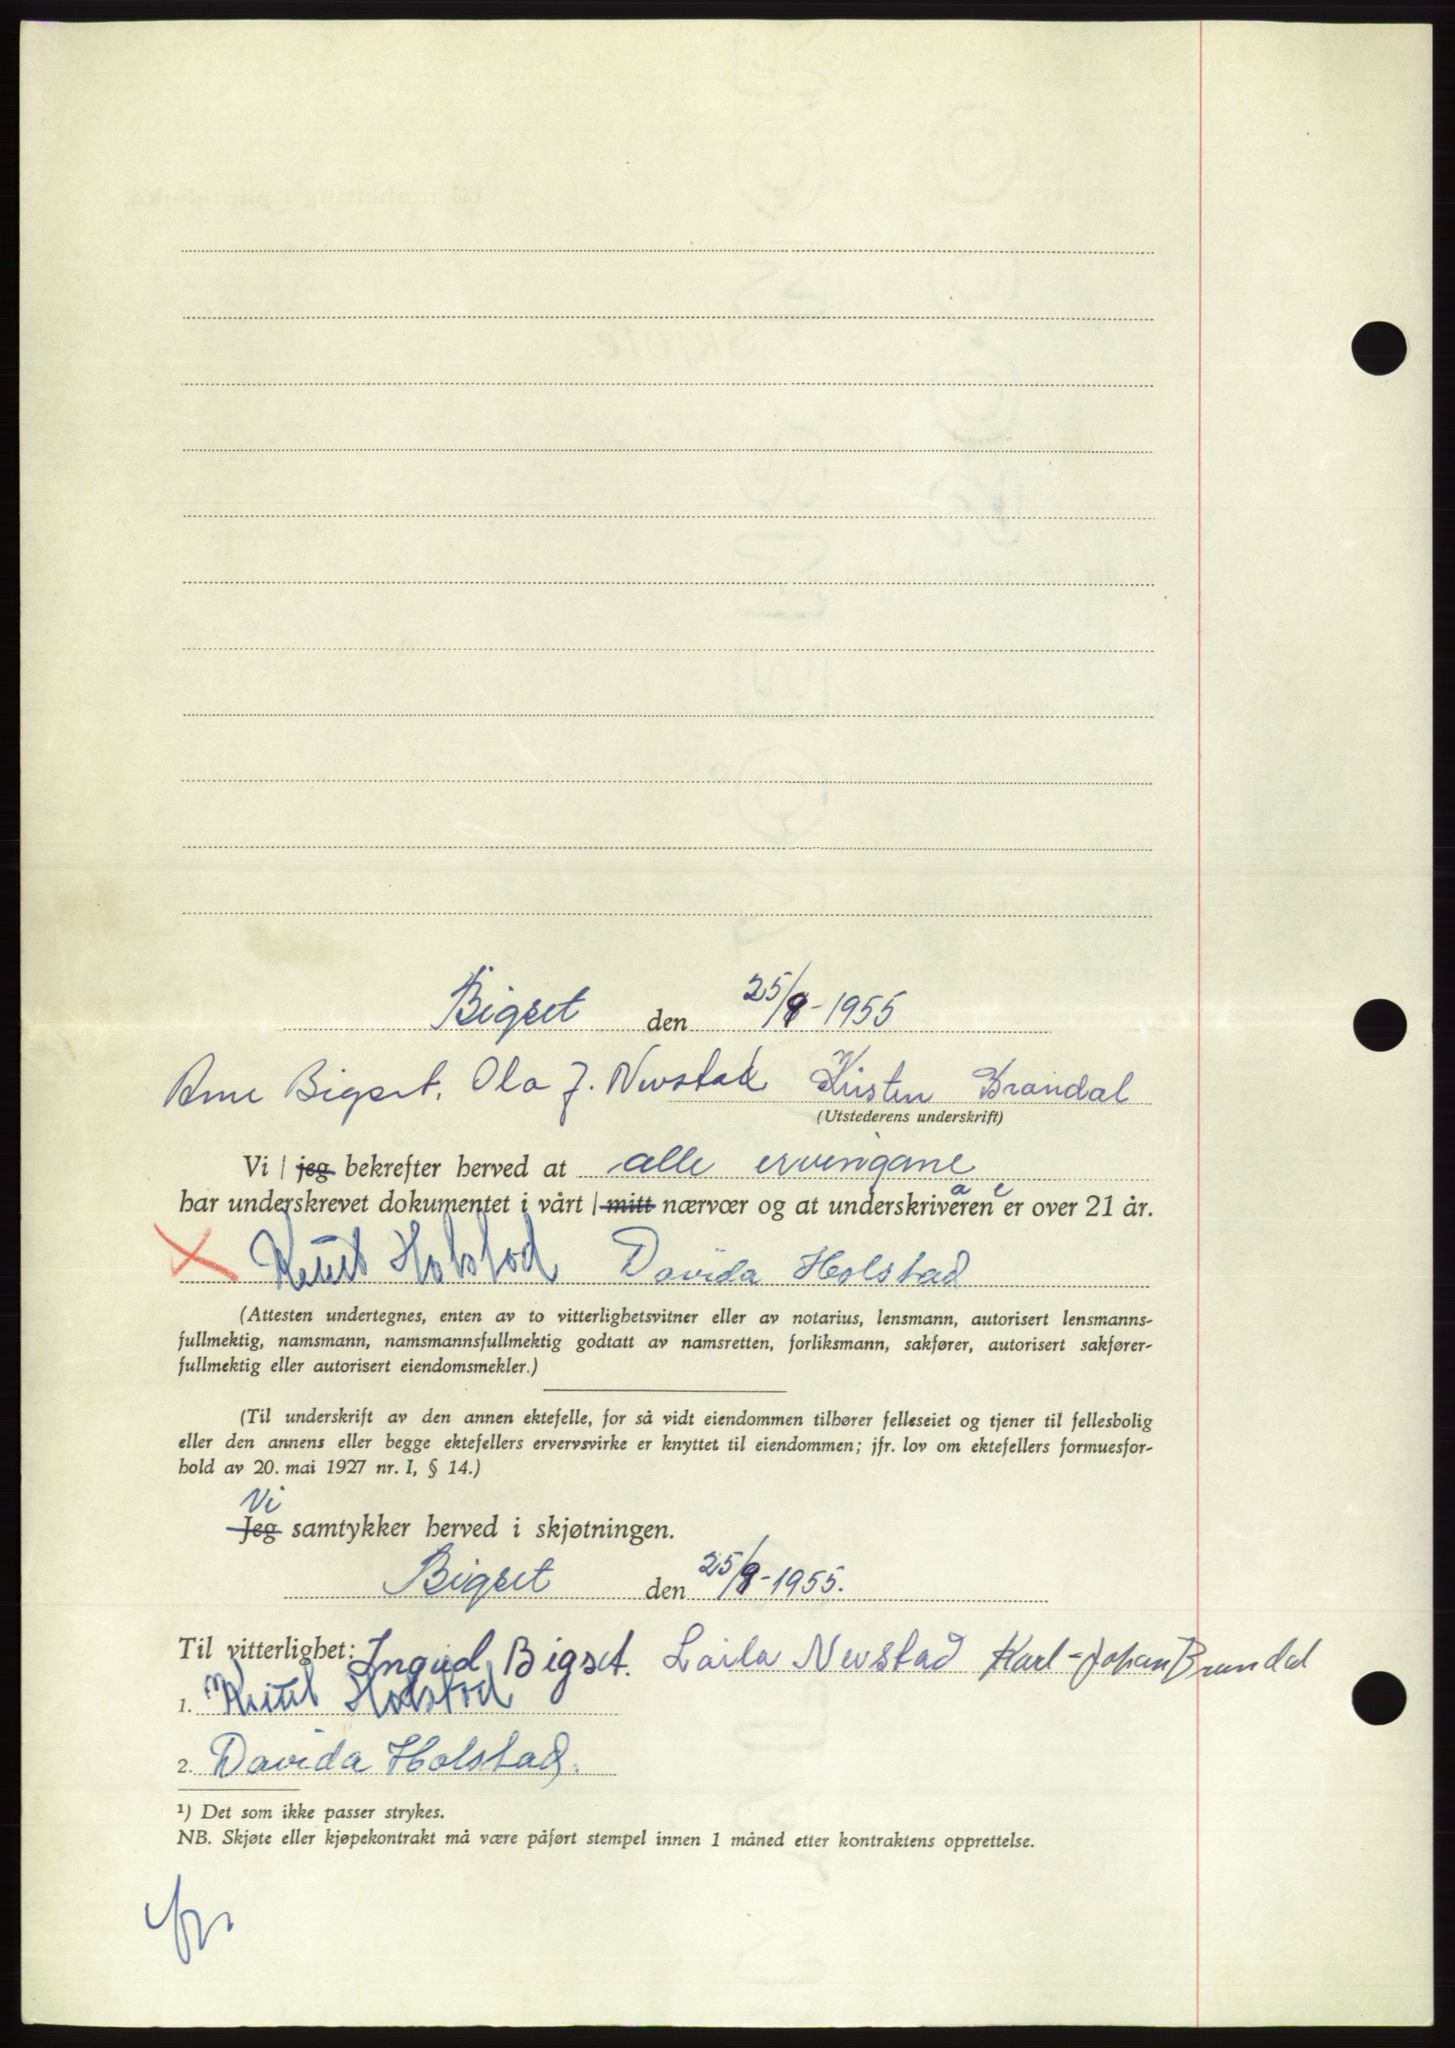 Bigset den 25/9-1955
Arne Bigset. Ola J. Nevstad Kirsten Brandal
(Utstederens underskrift)
Vi | jeg bekrefter herved at alle ervingane
har underskrevet dokumentet i vårt | mitt nærvær og at underskriverenane er over 21 år.
Knut Holstad Davida Holstad
(Attesten undertegnes, enten av to vitterlighetsvitner eller av notarius, lensmann, autorisert lensmanns-
fullmektig, namsmann, namsmannsfullmektig godtatt av namsretten, forliksmann, sakfører, autorisert sakfører-
fullmektig eller autorisert eiendomsmekler.)
(Til underskrift av den annen ektefelle, for så vidt eiendommen tilhører felleseiet og tjener til fellesbolig
eller den annens eller begge ektefellers ervervsvirke er knyttet til eiendommen; jfr. lov om ektefellers formuesfor-
hold av 20. mai 1927 nr. I, § 14.)
Vi
Jeg samtykker herved i skjøtningen.
Bigset den 25/9-1955.
Til vitterlighet: Ingrid Bigset. Laila Nevstad Karl-Johan Brandal
1. Knut Holstad
2. Davida Holstad.
¹) Det som ikke passer strykes.
NB. Skjøte eller kjøpekontrakt må være påført stempel innen 1 måned etter kontraktens opprettelse.